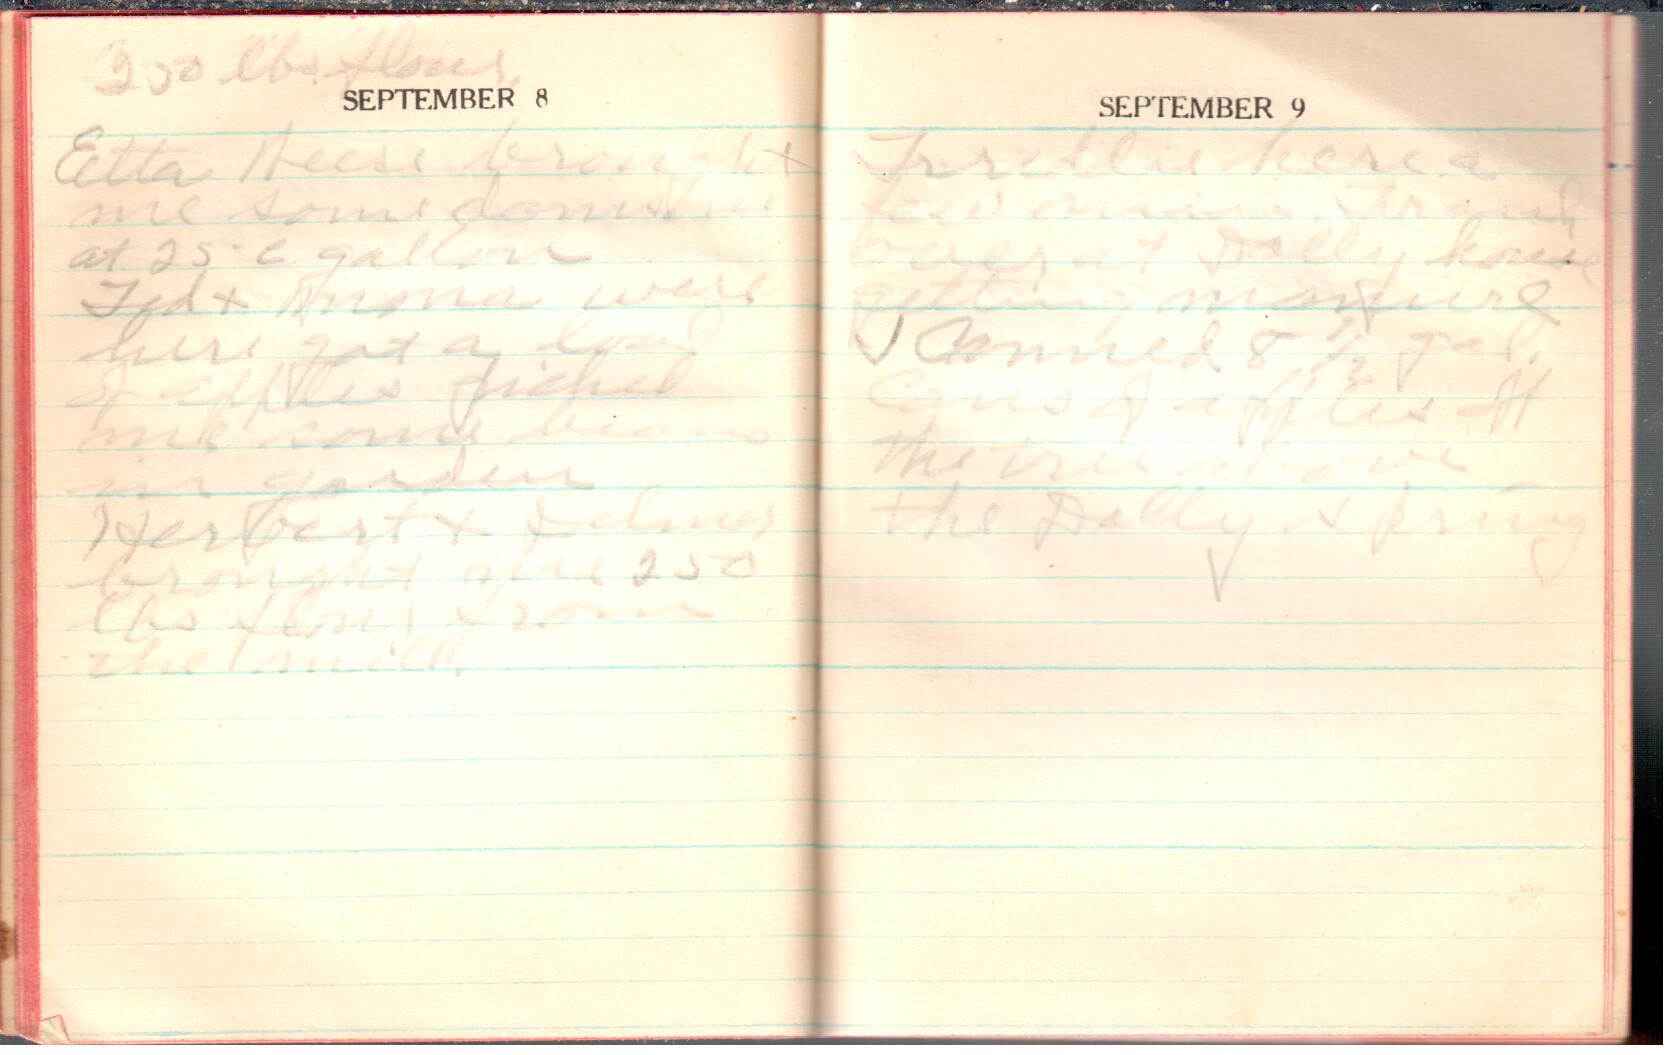 250 lbs flour
SEPTEMBER 8
Etta Heese brought
me some damsons
at 25 c gallon
Ted + Anona were
here got a load
of apples picked
me some beans
in garden
Herbert + Delmer
brought me 250
lbs flour from
the mill.
SEPTEMBER 9
Freddie here a
few mins. Frank
over at Dolly house
getting manure
I canned 8 1/2 gal.
Cans of apples off
the tree above
the Dolly spring